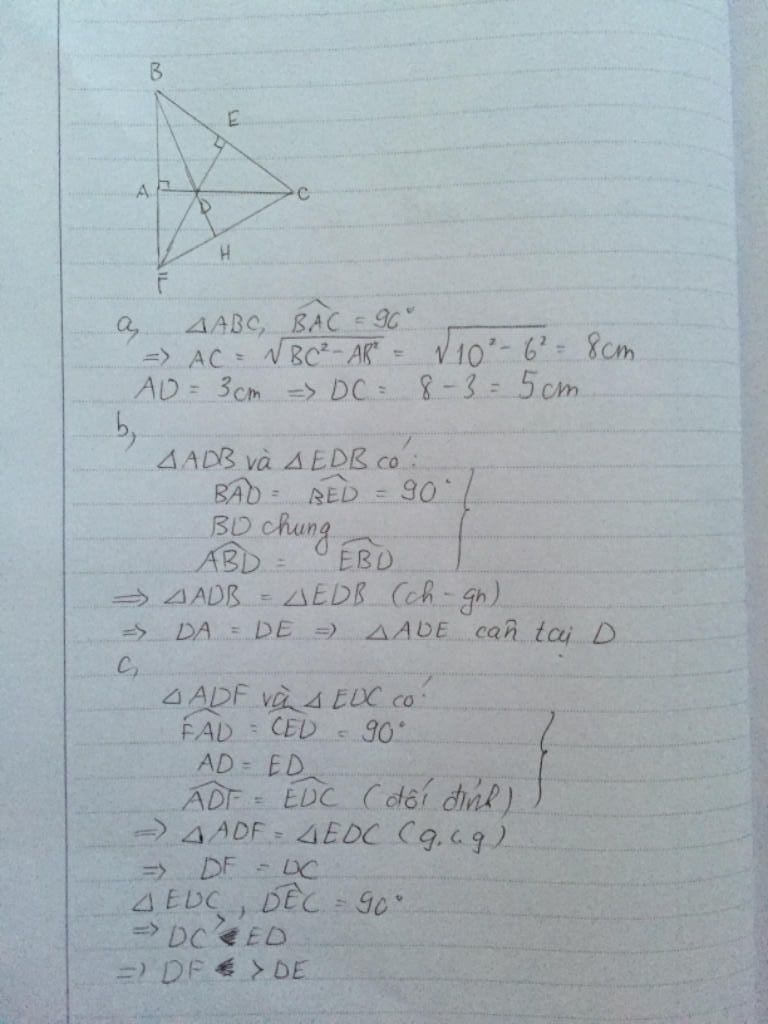 B
E
A
D
C
H
F
a, △ABC, B̂AC = 90°
=> AC = √BC² - AB² = √10² - 6² = 8cm
AD = 3cm => DC = 8 - 3 = 5cm
b,
△ADB và △EDB có:
B̂AD = B̂ED = 90°
BD chung
ÂBD = ÊBD
=> △ADB = △EDB (ch - gn)
=> DA = DE => △ADE cân tại D
c,
△ADF và △EDC có:
F̂AD = ĈED = 90°
AD = ED
ÂDF = ÊDC (đối đỉnh)
=> △ADF = △EDC (g.c.g)
=> DF = DC
△EDC, D̂EC = 90°
=> DC > ED
=> DF > DE